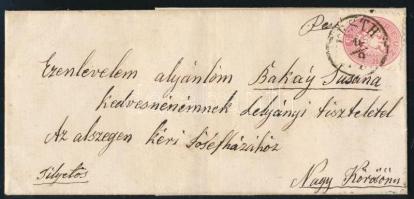 Pe
PESTH
Ezenlevelem aljánlom Bakáy Susána
kedvesnénémnek Lelyányi tisztelettel
Az alszegen kéri Józséfházihoz
Nagy Körösönn